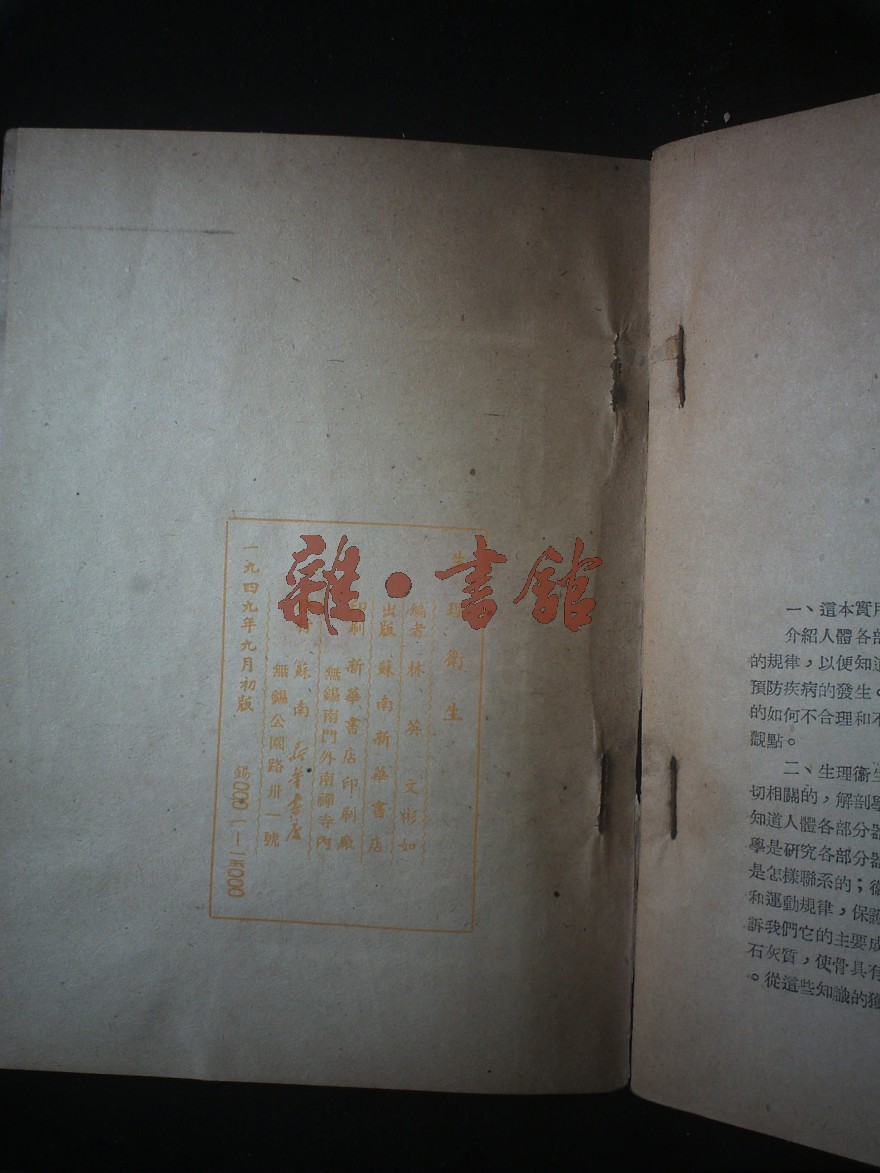 雜·書舘
生理衛生
編者 林英 文彬如
出版 蘇南新華書店
印刷 新華書店印刷廠
無錫南門外南禪寺內
蘇南新華書店
無錫公園路卅一號
一九四九年九月初版
一、這本實用
介紹人體各部
的規律，以便知道
預防疾病的發生。
的如何不合理和不
觀點。
二、生理衞生
切相關的，解剖學
知道人體各部分器
學是研究各部分器
是怎樣聯系的；衞
和運動規律，保護
訴我們它的主要成
石灰質，使骨具有
。從這些知識的獲